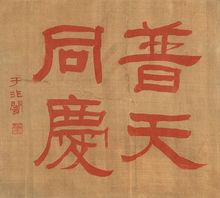 普天
同慶
于非闇